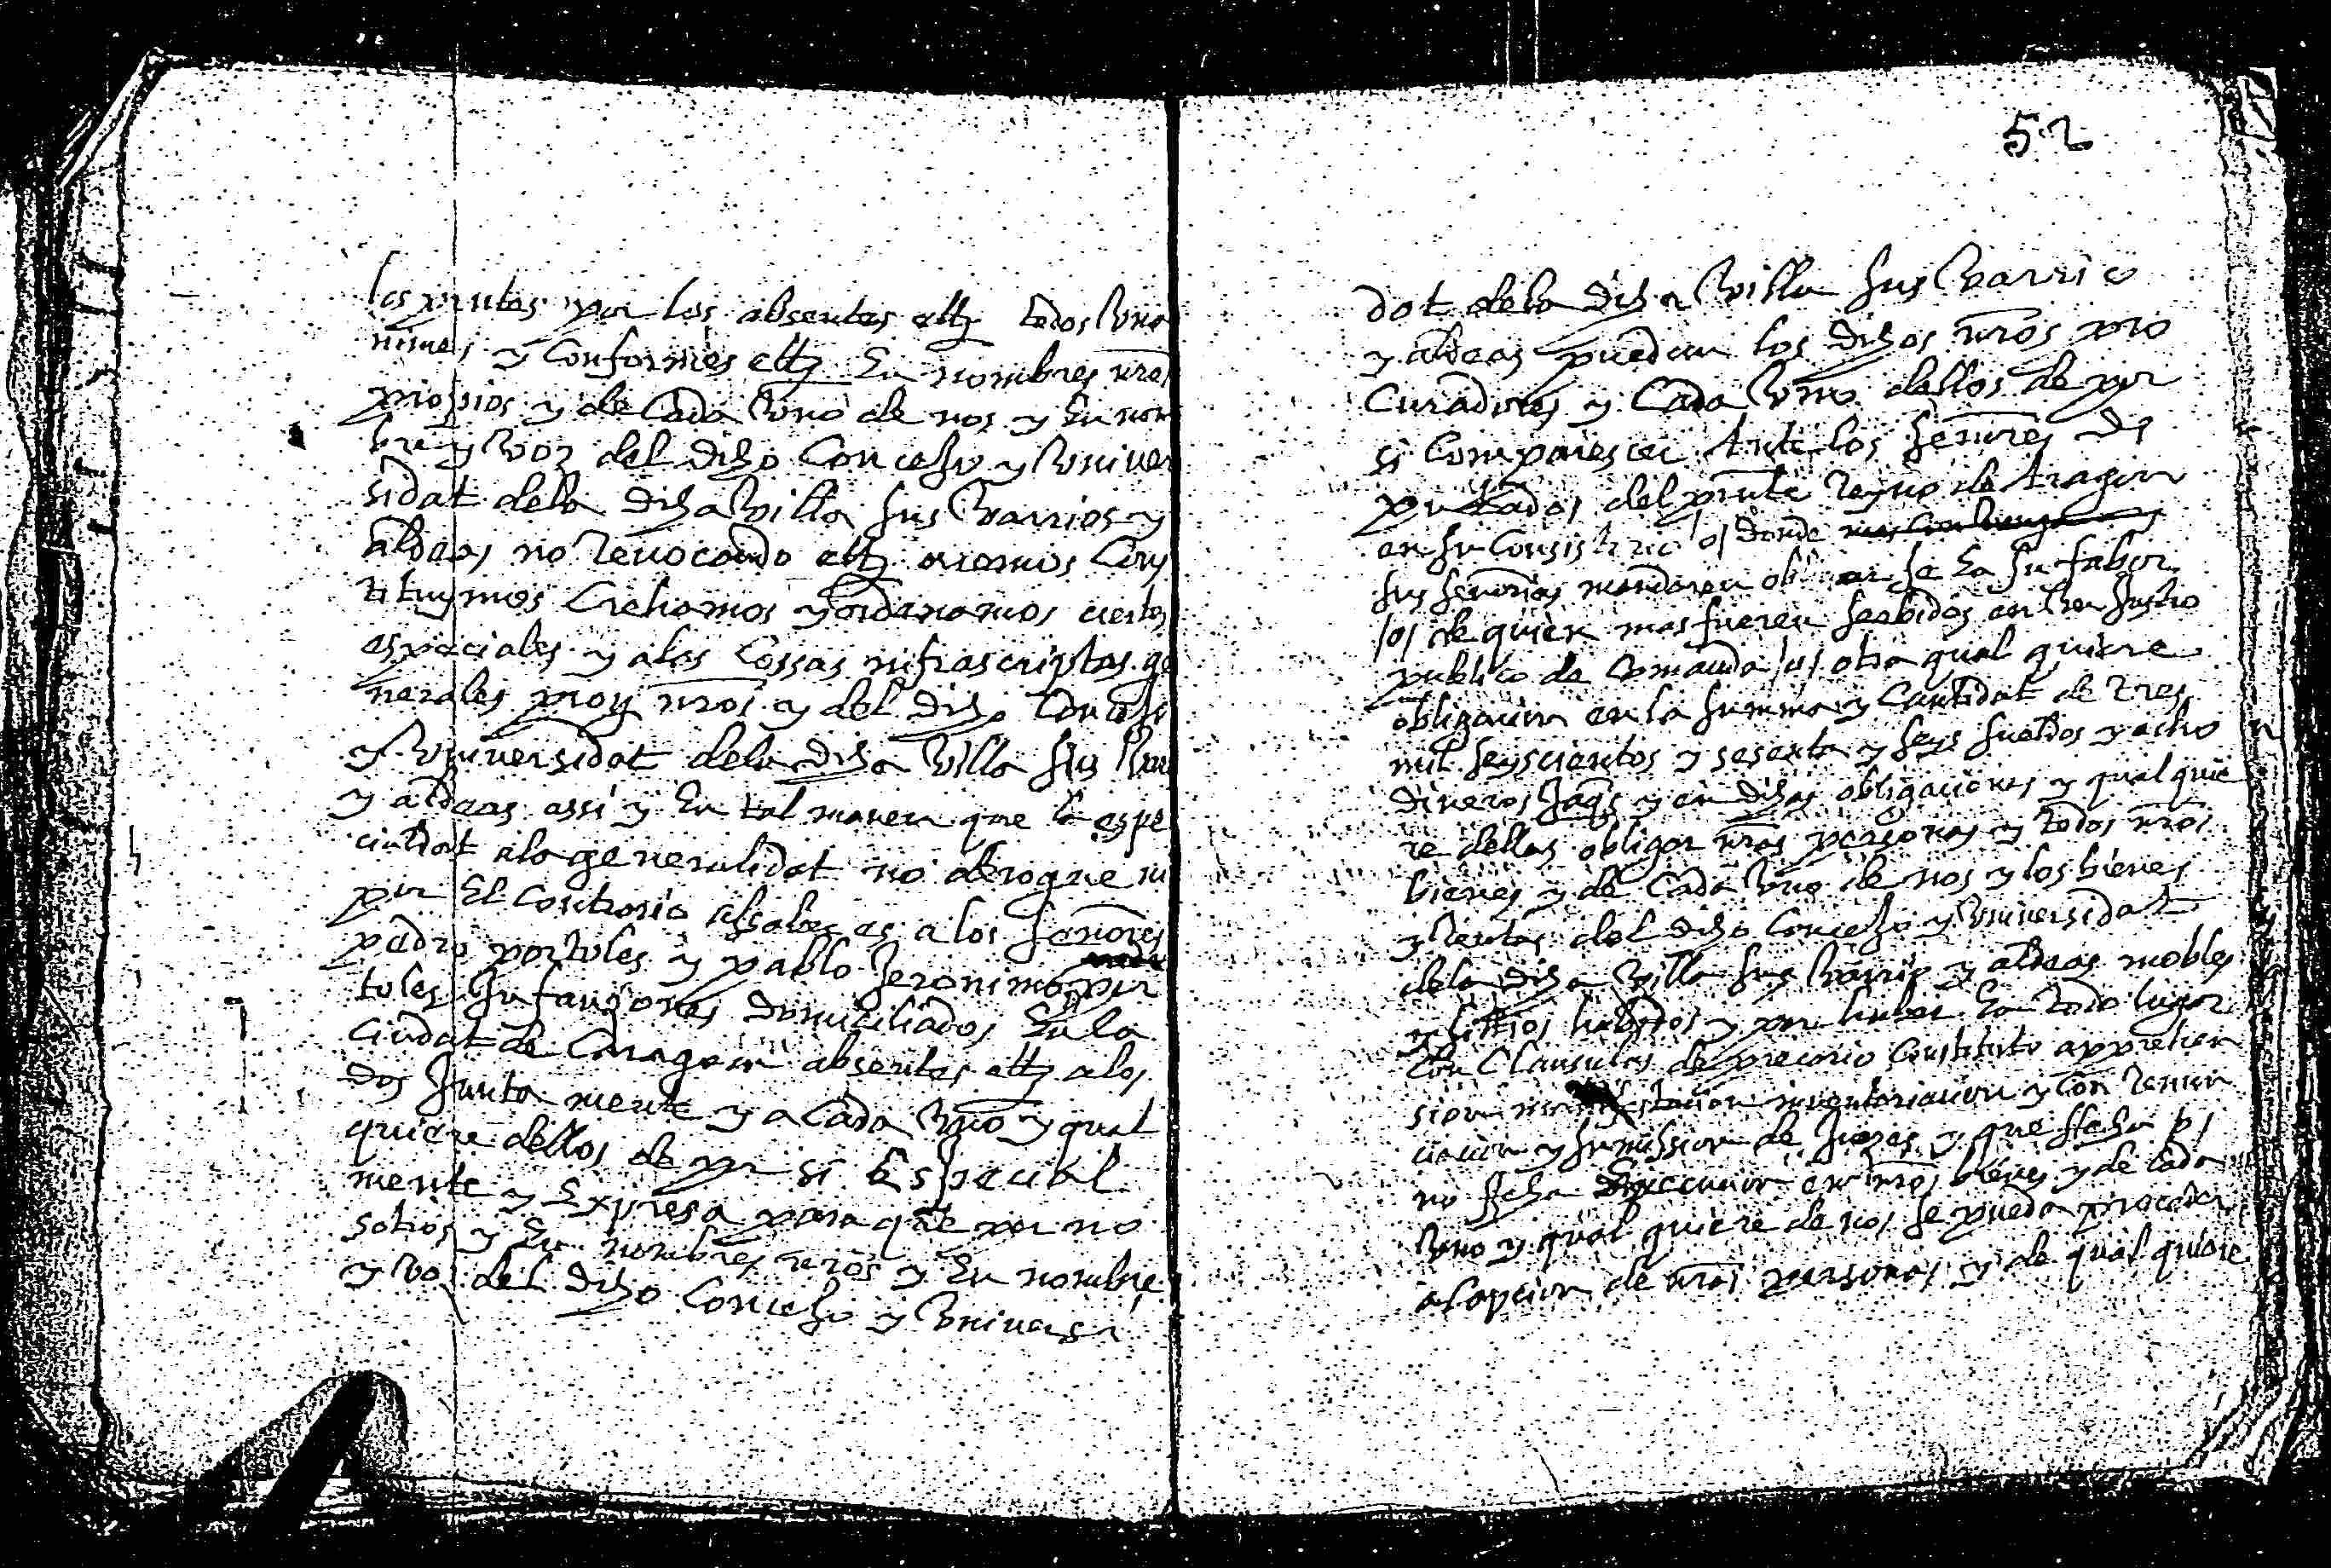 los pntes por los absentes ettz todos vna
nimes y conformes ettz En nombres nros
propios y de cada vno de nos y En nom
bre y voz del dicho Concejo y vniver
sidat dela dicha villa sus varrios y
aldeas no revocando ettz oriemos Cons
tituymos Crehamos y ordenamos ciertos
espaciales y alas cossas infrascriptas ge
nerales pros nros y del dicho Concejo
y vniversidat dela dicha villa sus var
y aldeas assi y En tal manera que la espe
cialdat ala generalidat no derogue ni
por El contrario assaber es a los señores
pedro portoles y pablo Jeronimo por
toles Infançones domiciliados En la
ciudat de Caragoça absentes ettz alos
dos Junta mente y a cada vno y qual
quiere dellos de por si Especial
mente y Expresa para que por no
sotros y En nombres nros y En nombre
y voz del dicho Concejo y vniversi
52
dat dela dicha villa sus varrios
y aldeas puedan los dichos nros pro
curadores y cada vno dellos de por
si Comparescer Ante los señores di
putados del pnte Reyno de Aragon
en su Consistorio /o/ donde
sus señorias mandaren obligar se En su fabor
/o/ de quien mas fueren serbidos en
publico de Comanda /o/ otra qual quiere
obligacion en la summa y Cantidat de tres
mil seyscientos y sesenta y seys sueldos y ocho
dineros Jaqs y en dichas obligaciones y qual quie
re dellas obligar nras personas y todos nros
bienes y de cada vno de nos y los bienes
y rentas del dicho Concejo y vniversidat
dela dicha villa sus varrios y aldeas mobles
y sittios habidos y por haber En todo lugar
Con Clausulas de precario Constituto apprehen
sion inventariacion y con renun
ciacion y sumission de Juezes y que fecha /o/
no fecha Execucion en nros bienes y de cada
vno y qual quiere de nos se pueda proceder
a capcion de nras personas y de qual quiere